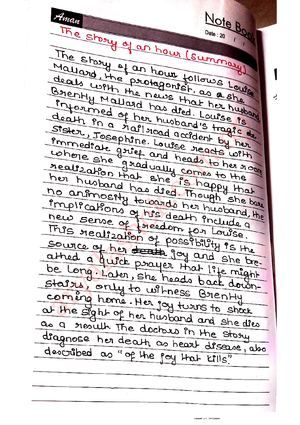 Aman
Note Book
Date: 20 / /
The story of an hour (summary)
The story of an hour follows Louise
Mallard, the protagonist, as a she
deals with the news that her husband
Brently Mallard has died. Louise is
informed of her husband's tragic de
death in a railroad accident by her
sister, Josephine. Louise reacts with
immediate grief and heads to her room
where she gradually comes to the
realization that she is happy that
her husband has died. Though she bare
no animosity towards her husband, the
implications of his death include a
new sense of freedom for Louise.
This realization of possibility is the
source of her death joy and she bre-
athed a quick prayer that life might
be Long. Later, she heads back down-
stairs, only to witness Brently
coming home. Her joy turns to shock
at the sight of her husband and she dies
as a result The doctors in the story
diagnose her death as heart disease, also
described as "of the joy that kills"